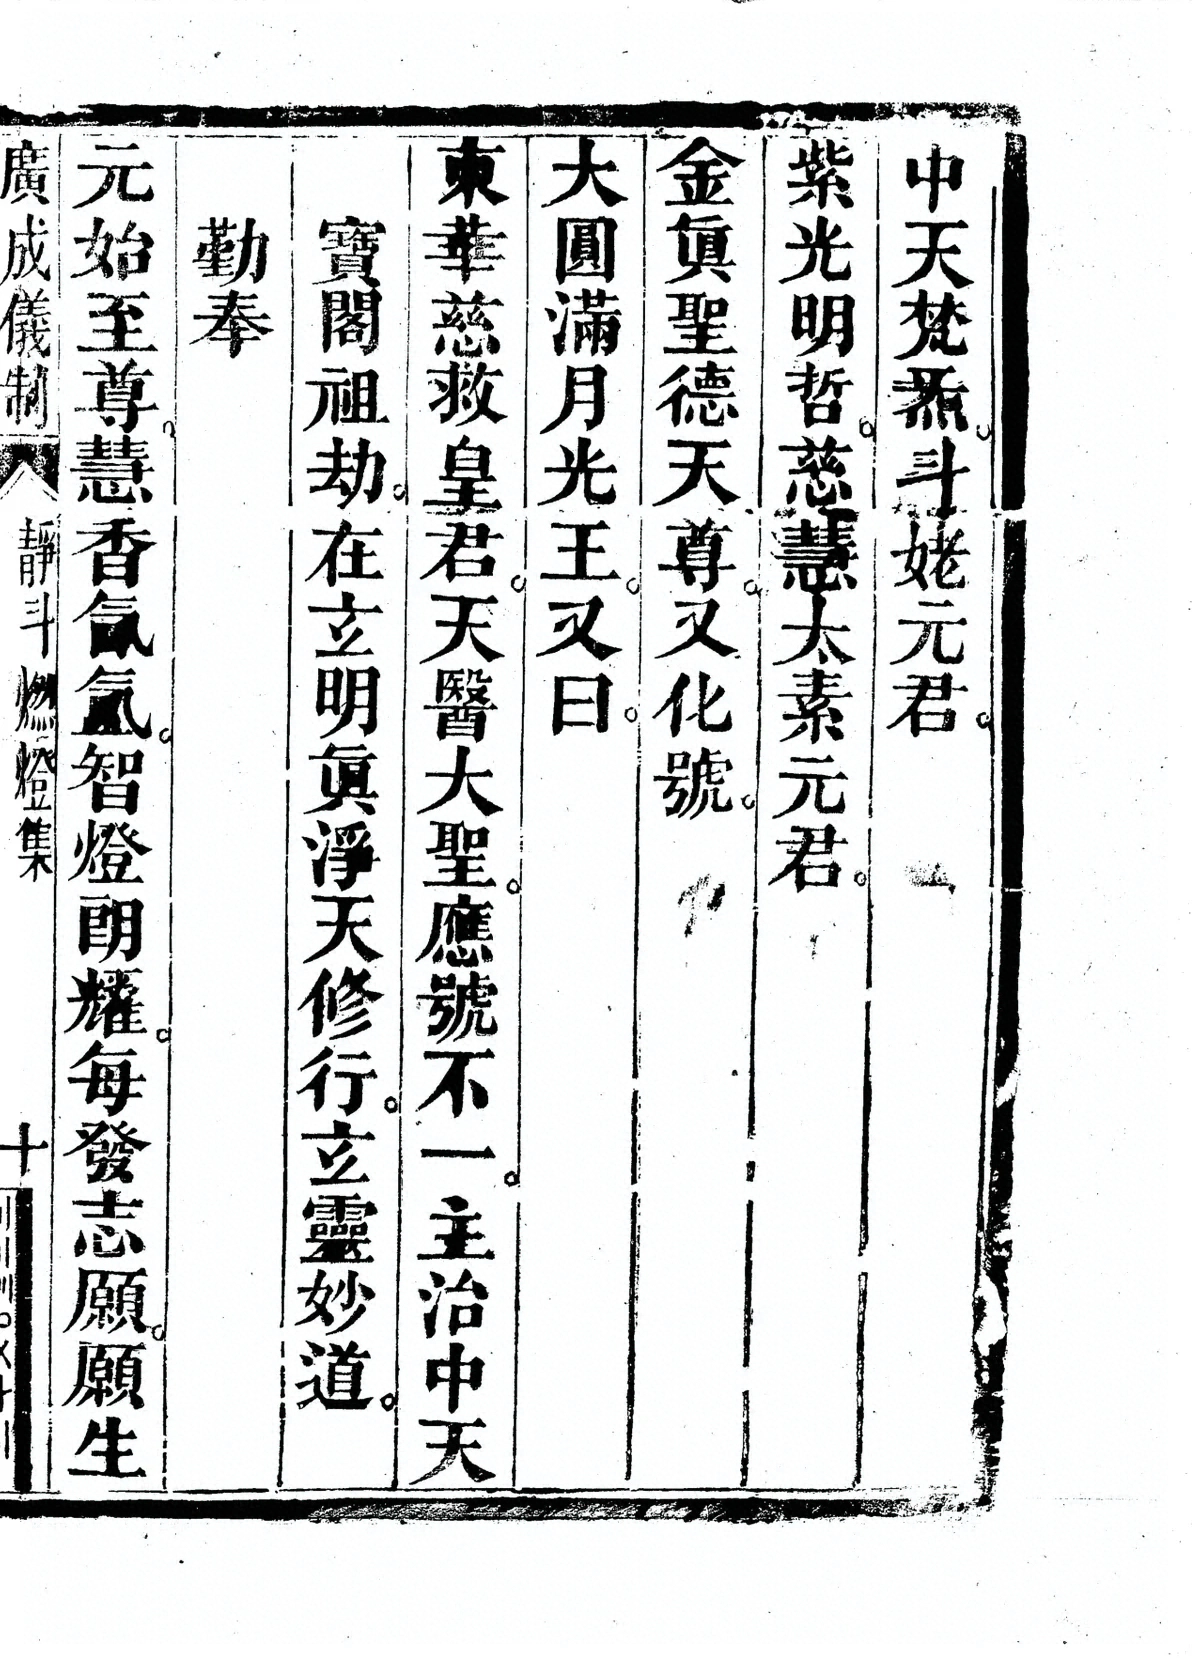 中天梵炁。斗姥元君。
紫光明哲。慈慧太素元君。
金眞聖德天尊。又化號。
大圓滿月光王。又曰。
東華慈救皇君。天醫大聖。應號不一。主治中天
寶閣祖劫。在立明眞淨天修行。立靈妙道。
勤奉
元始至尊。慧香氤氳。智燈朗耀。每發志願。願生
廣成儀制 靜斗燃燈集 十